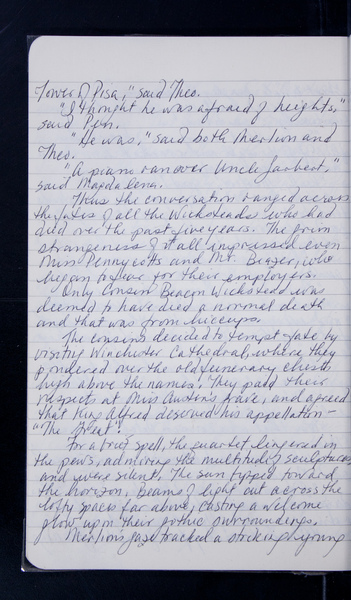 Tower of Pisa," said Theo.
"I thought he was afraid of heights,"
said Pen.
"He was," said both Merlion and
Theo.
"A piano ran over Uncle Jarbert,"
said Magdalena.
Thus the conversation ranged across
the fates of all the Wicksteads who had
died over the past five years. The grim
strangeness of it all impressed even
Miss Pennycotts and Mr. Beazer, who
began to fear for their employers.
Only Cousin Beacon Wickstead was
deemed to have died a normal death
and that was from hiccups.
The cousins decided to tempt fate by
visiting Winchester Cathedral, where they
pondered over the old funerary chests
high above the names. They paid their
respects at Miss Austen's grave, and agreed
that King Alfred deserved his appellation –
"The Great".
For a brief spell, the quartet lingered in
the pews, admiring the multitude of sculptures,
and were silent. The sun tipped toward
the horizon, beams of light cut across the
lofty spaces far above, casting a welcome
glow upon their gothic surroundings.
Merlion's gaze tracked a strikingly young